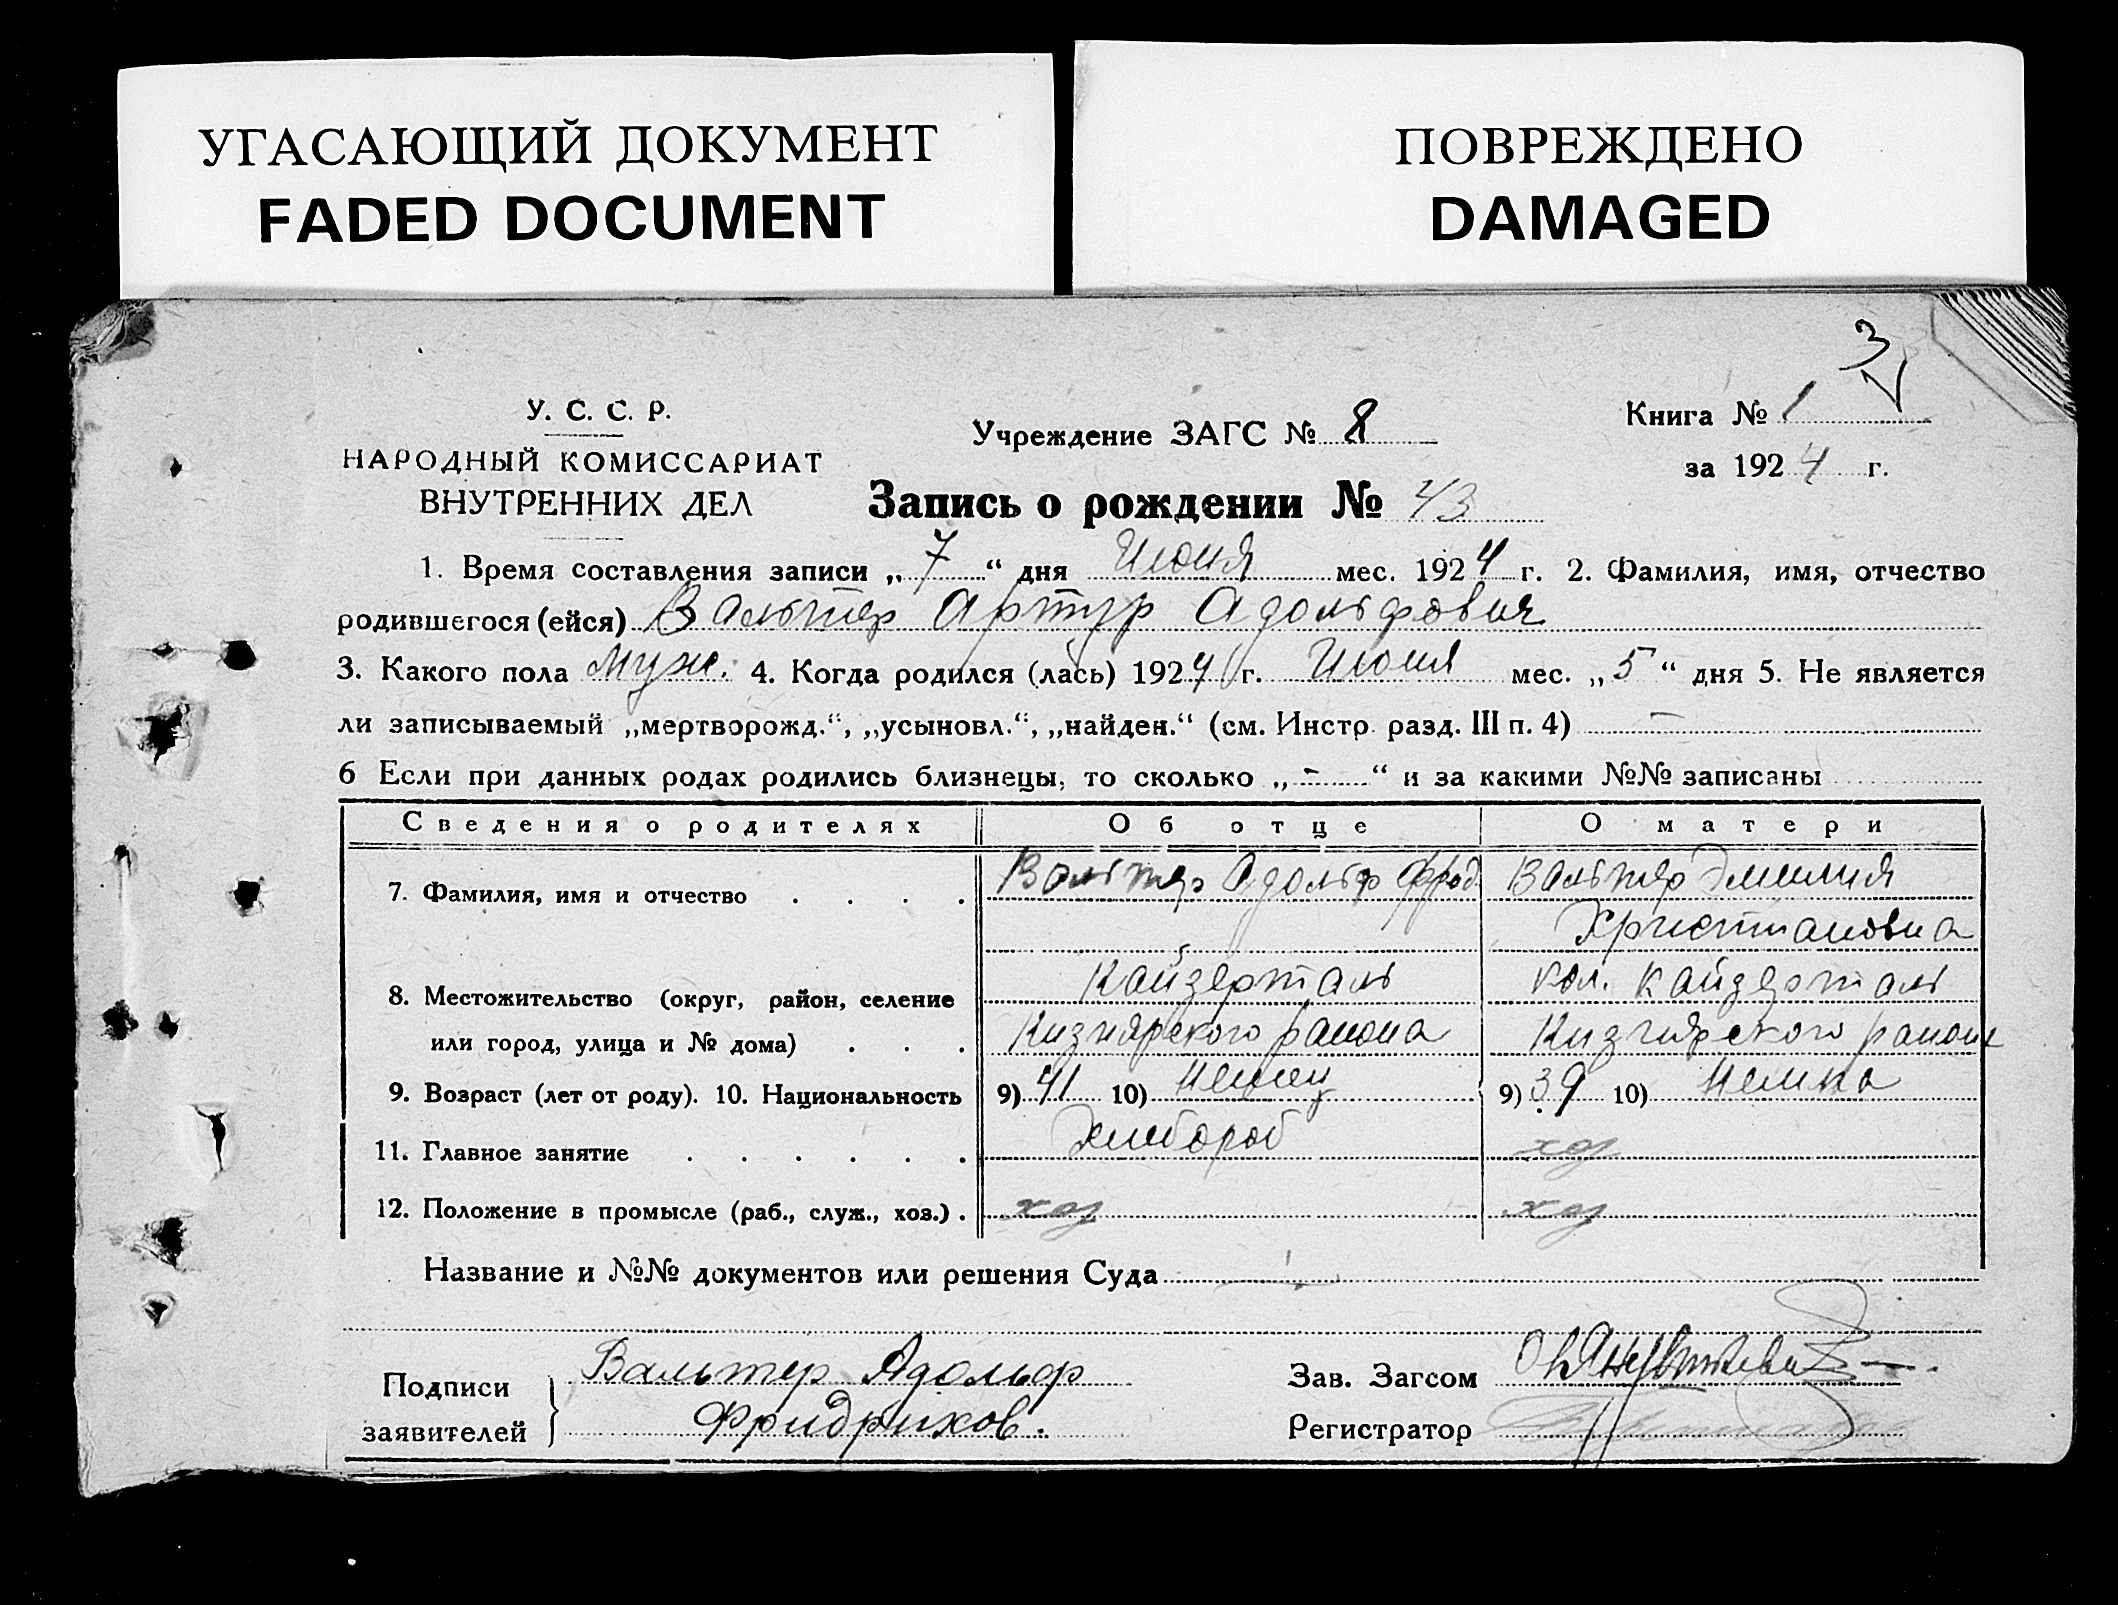 УГАСАЮЩИЙ ДОКУМЕНТ
FADED DOCUMENT
ПОВРЕЖДЕНО
DAMAGED
3
У. С. С. Р.
НАРОДНЫЙ КОМИССАРИАТ
ВНУТРЕННИХ ДЕЛ
Учреждение ЗАГС № 8
Книга № 1
за 1924 г.
Запись о рождении № 43
1. Время составления записи „7“ дня Июня мес. 1924 г. 2. Фамилия, имя, отчество
родившегося (ейся) Вальтер Артур Адольфович
3. Какого пола муж. 4. Когда родился (лась) 1924 г. Июня мес. „5“ дня 5. Не является
ли записываемый „мертворожд.“, „усыновл.“, „найден.“ (см. Инстр. разд. III п. 4) —
6 Если при данных родах родились близнецы, то сколько „-“ и за какими №№ записаны
Сведения о родителях Об отце О матери
7. Фамилия, имя и отчество . . . . Вальтер Адольф Фрид. Вальтер Эмилия
Христиановна
8. Местожительство (округ, район, селение Кайзерталь кол. Кайзерталь
или город, улица и № дома) . . . Кизиярского района Кизиярского района
9. Возраст (лет от роду). 10. Национальность 9) 41 10) Немец 9) 39 10) Немка
11. Главное занятие . . . . . . Хлебороб хоз
12. Положение в промысле (раб., служ., хоз.) . хоз хоз
Название и №№ документов или решения Суда
Подписи заявителей Вальтер Адольф
Фридрихов.
Зав. Загсом
Регистратор